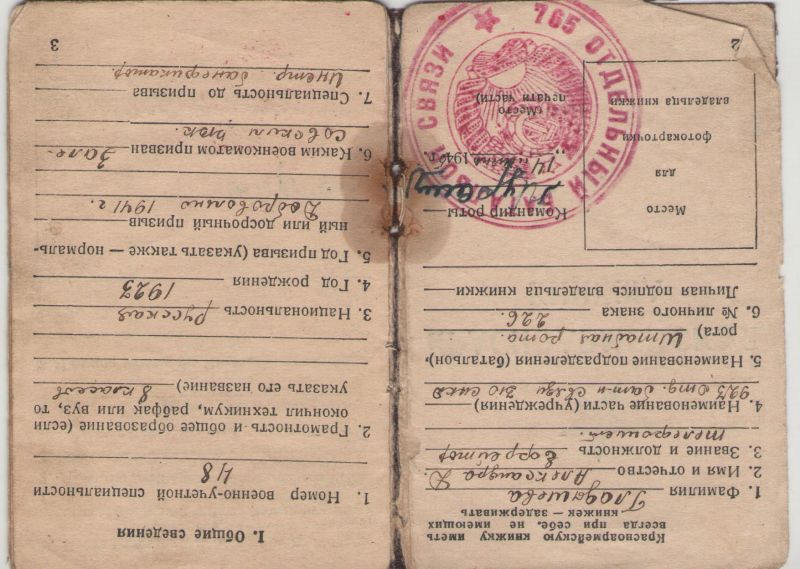 Красноармейскую книжку иметь
всегда при себе. не имеющих
книжек — задерживать
1. Фамилия Гладышева
2. Имя и отчество Александра
3. Звание и должность Ефрейтор
телефонист.
4. Наименование части (учреждения)
Отд. бат-н связи
5. Наименование подразделения (батальон,
рота) Штабная рота.
6. № личного знака 226.
Личная подпись владельца книжки
Место
для
фотокарточки
владельца книжки
Командир роты
„14" 194 г.
(Место
печати части)
765 ОТДЕЛЬНЫЙ БАТАЛЬОН СВЯЗИ
2
I. Общие сведения
1. Номер военно-учетной специальности
48
2. Грамотность и общее образование (если
окончил техникум, рабфак или вуз, то
указать его название) 8 классов
3. Национальность русская
4. Год рождения 1923
5. Год призыва (указать также — нормаль-
ный или досрочный призыв
Добровольно 1941 г.
6. Каким военкоматом призван
Совским РВК.
7. Специальность до призыва
3